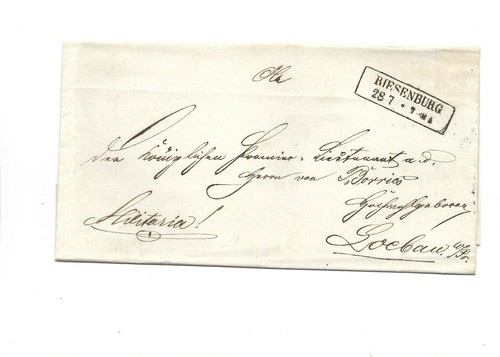 An
RIESENBURG
28 7 * 7-8 N
den Königlichen Premier-Lieutenant a.d.
Herrn von Borries
Hochwohlgeboren
Militaria!
Loebau W/Pr.